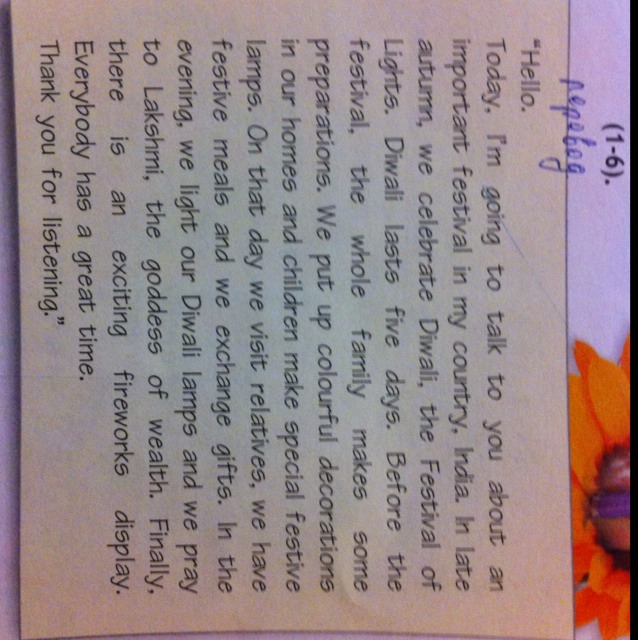 (1-6).
перевод
“Hello.
Today, I'm going to talk to you about an
important festival in my country, India. In late
autumn, we celebrate Diwali, the Festival of
Lights. Diwali lasts five days. Before the
festival, the whole family makes some
preparations. We put up colourful decorations
in our homes and children make special festive
lamps. On that day we visit relatives, we have
festive meals and we exchange gifts. In the
evening, we light our Diwali lamps and we pray
to Lakshmi, the goddess of wealth. Finally,
there is an exciting fireworks display.
Everybody has a great time.
Thank you for listening.”